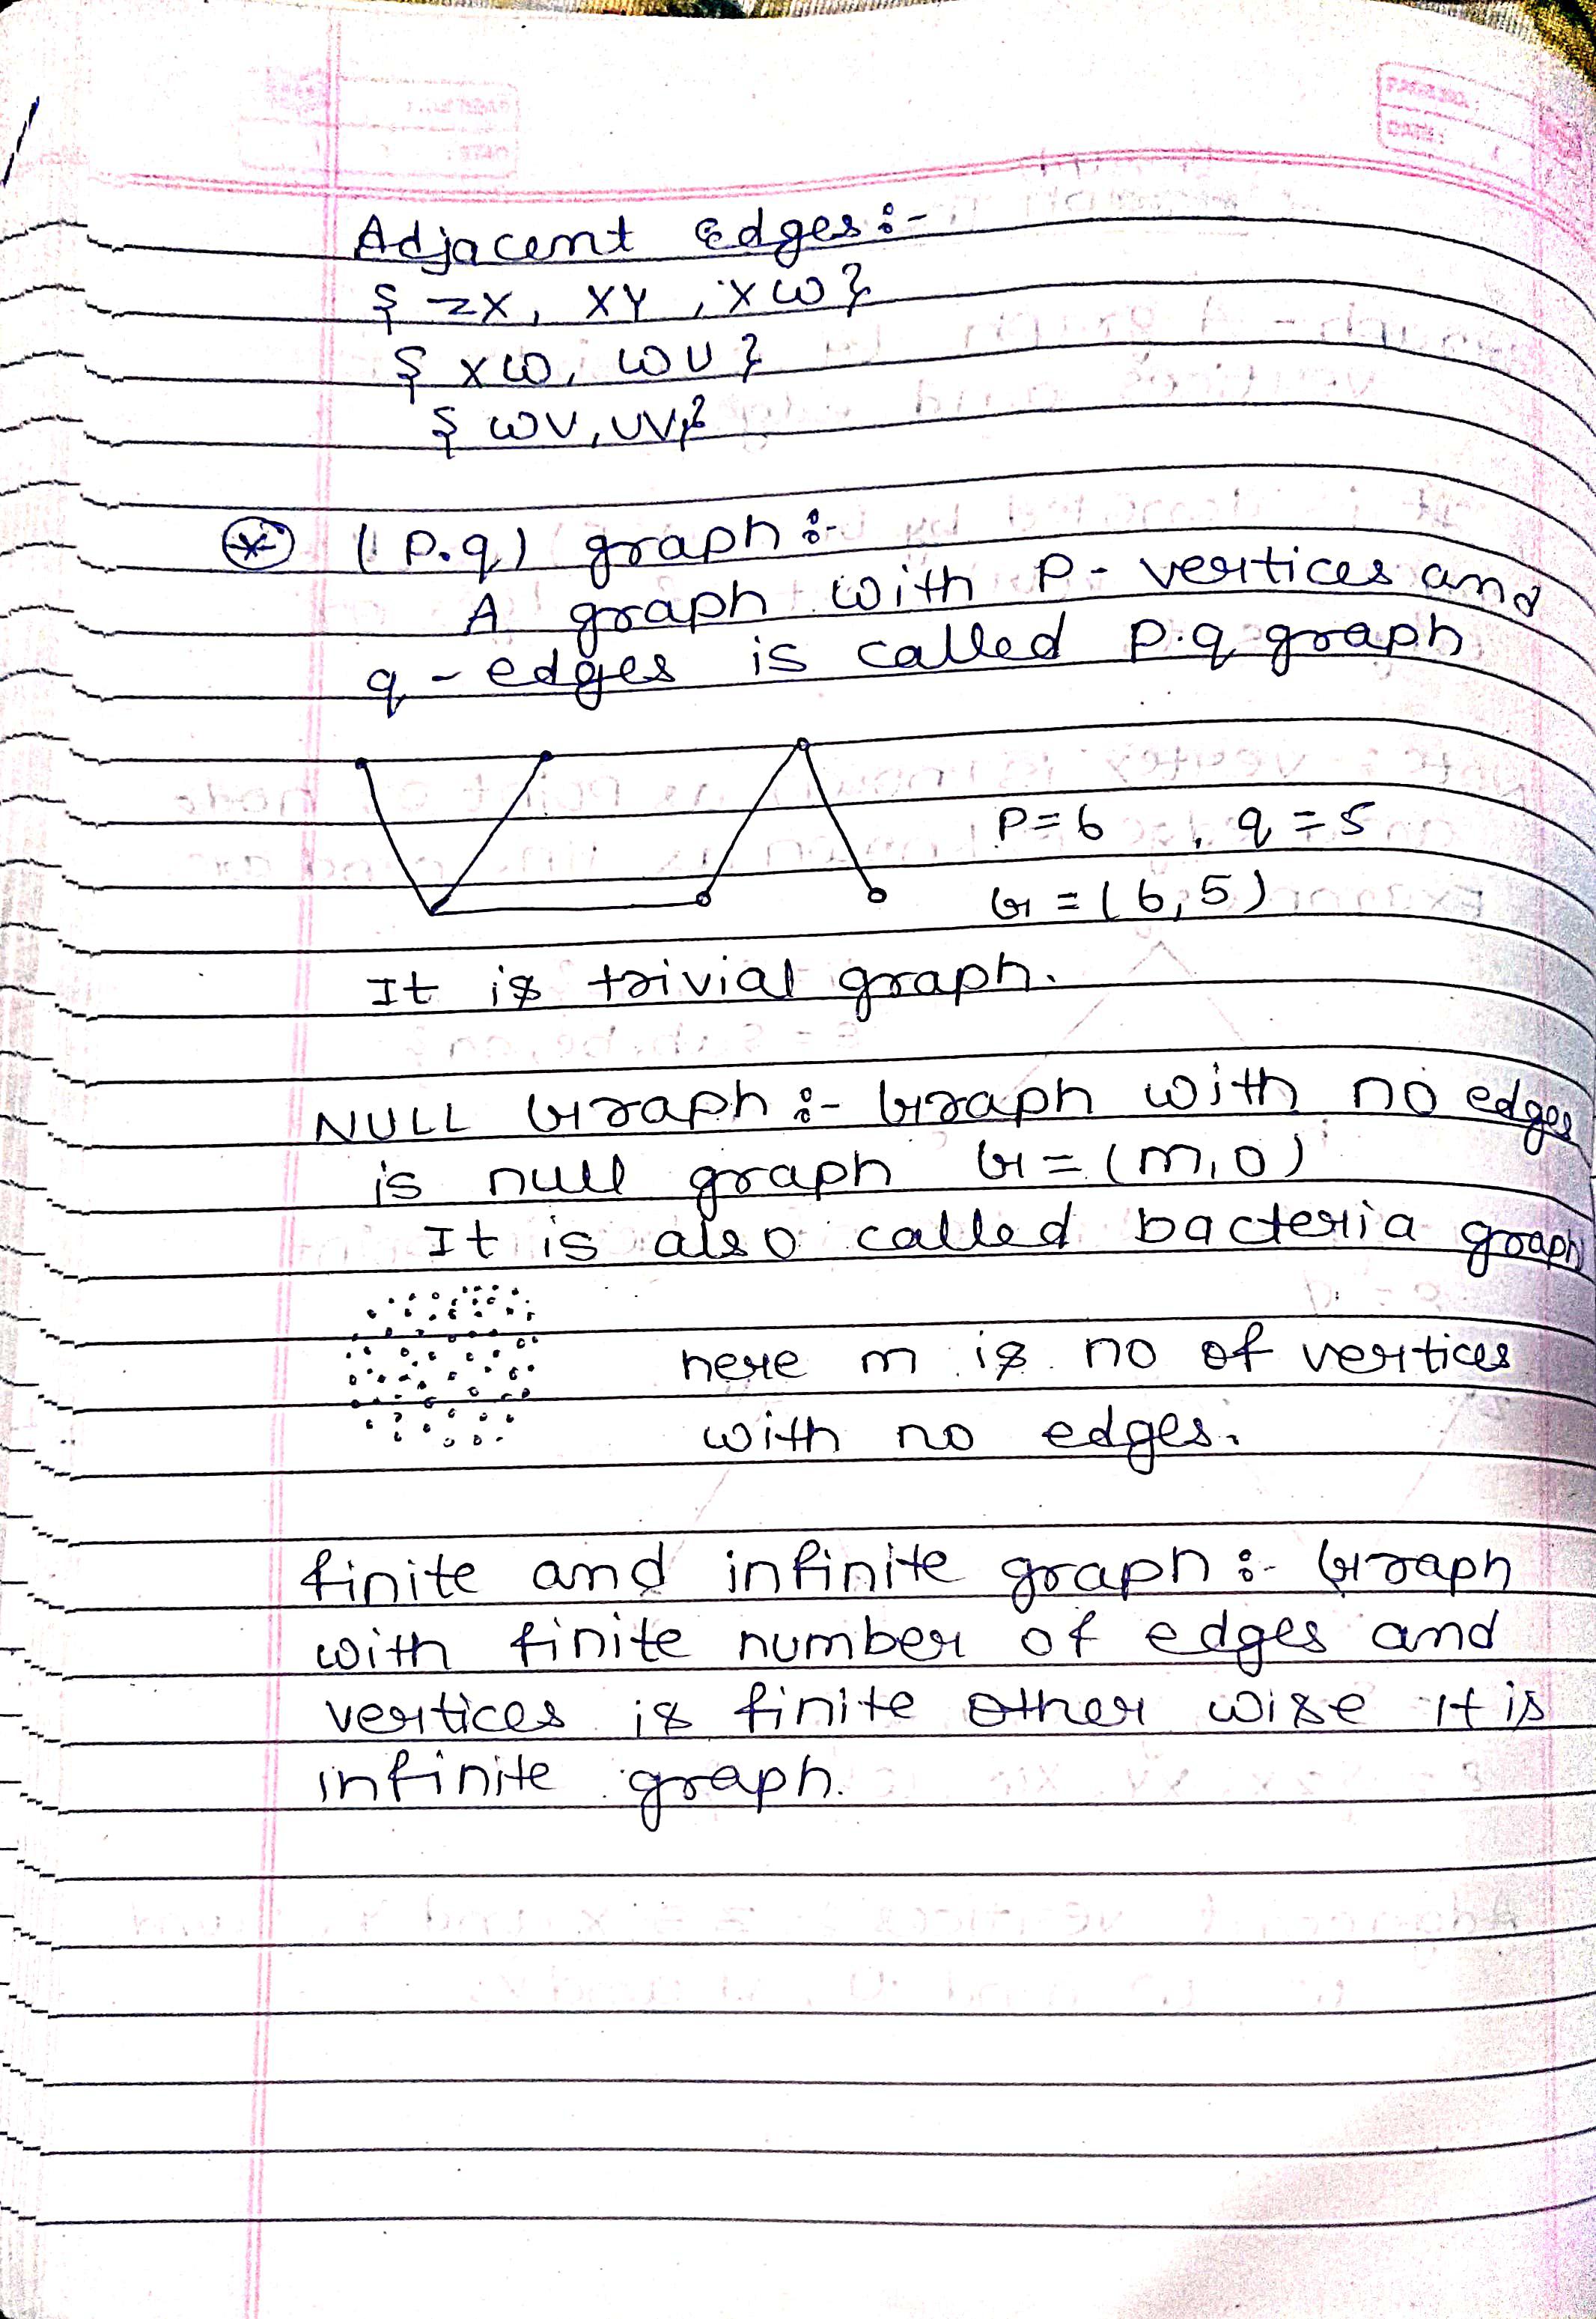 Adjacent Edges:-
{ zx, xy, xw }
{ xw, wu }
{ wv, uv }
(P.q) graph :-
A graph with P- vertices and
q - edges is called P.q graph
P=6 , q = 5
G = (6,5)
It is trivial graph.
NULL Graph :- Graph with no edges
is null graph G = (m,0)
It is also called bacteria graph
here m is no of vertices
with no edges.
finite and infinite graph :- Graph
with finite number of edges and
vertices is finite other wise it is
infinite graph.